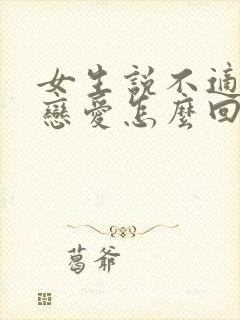 女生說不適
戀愛怎麼回
葛爺